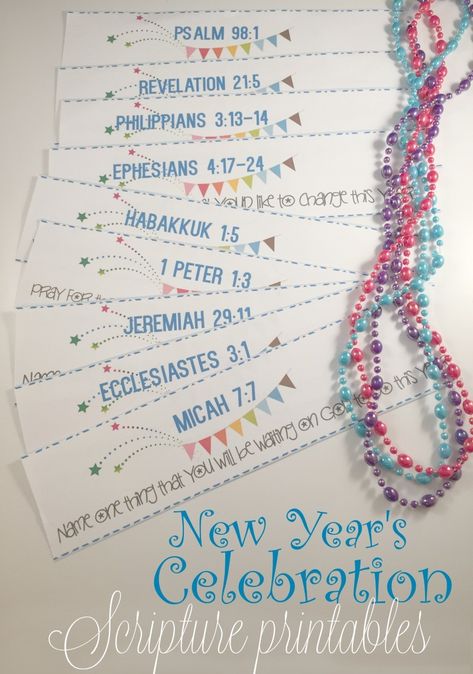 PSALM 98:1
REVELATION 21:5
PHILIPPIANS 3:13-14
EPHESIANS 4:17-24
You'd like to change this
HABAKKUK 1:5
1 PETER 1:3
PRAY FOR
JEREMIAH 29:11
Name
ECCLESIASTES 3:1
MICAH 7:7
Name one thing that you will be waiting on God to do this
New Year's
Celebration
Scripture printables